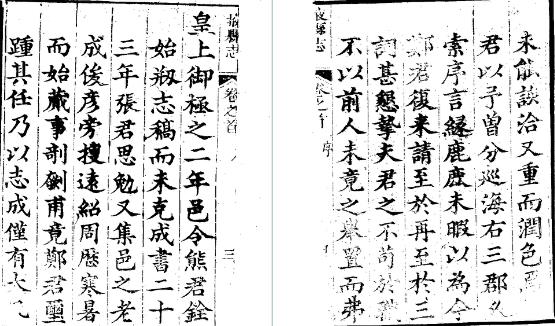 掖縣志
卷之首
三
皇上御極之二年邑令熊君銓
始剏志稿而未克成書二十
三年張君思勉又集邑之老
成俊彦旁搜遠紹周歴寒暑
而始蕆事剞劂甫竟鄭君璽
踵其任乃以志成僅有大凡
未能該洽又重而潤色焉
君以予曾分巡海右三郡久
索序言緣鹿鹿未暇以為今
鄭君復来請至於再至於三
詞甚懇摯夫君之不苟於職
不以前人未竟之舉置而弗
掖縣志
卷之首
序